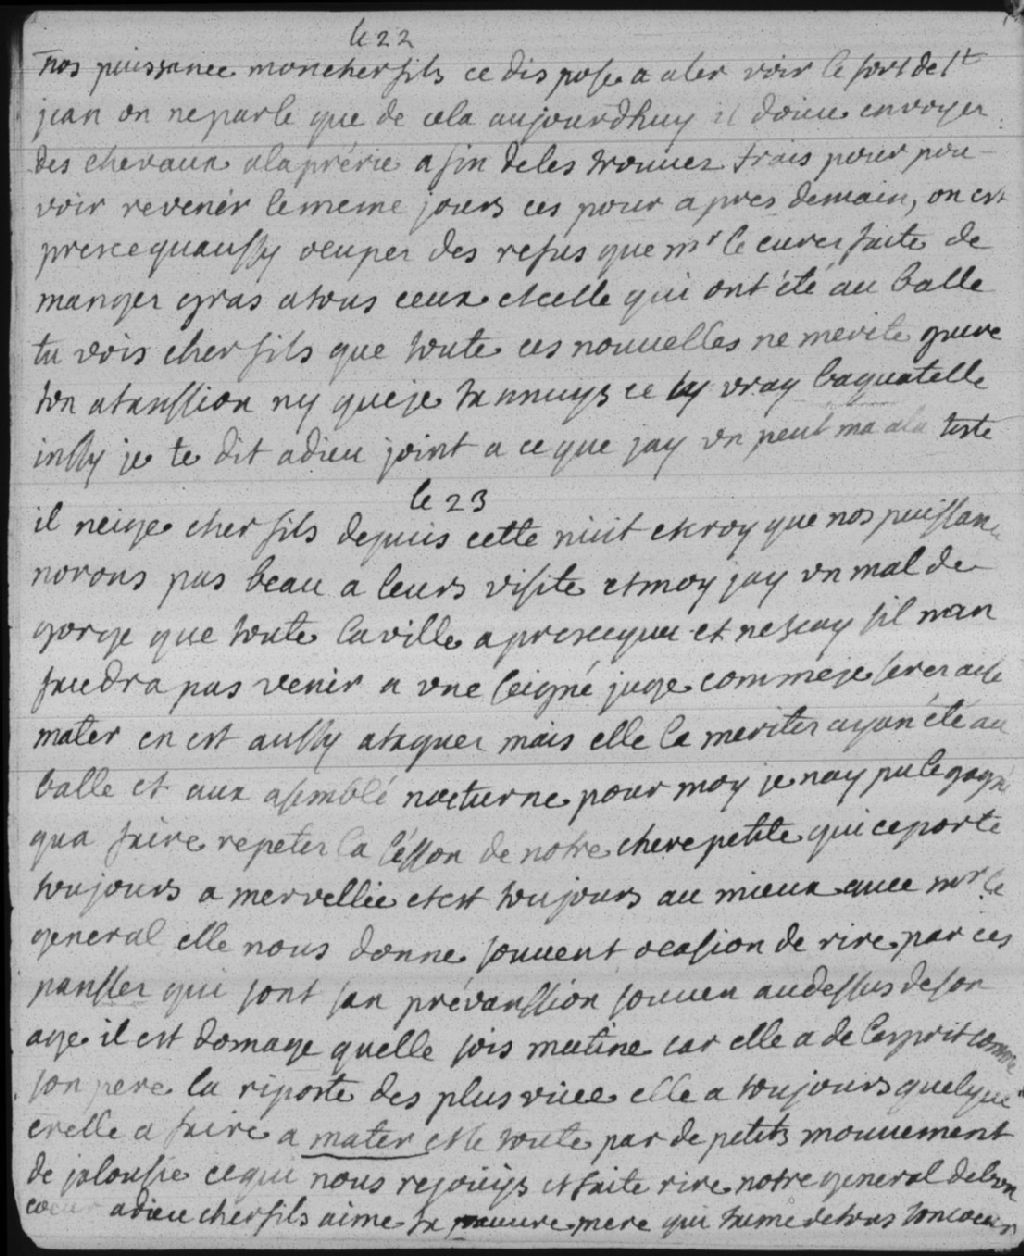 le 22
nos puissance mon cher fils ce dispose a aler voir le fort de st
jean on ne parle que de cela aujourdhuy il doive envoyer
des chevaux a la prérie afin de les trouver frais pour pou-
voir revenir le meme jours ces pour apres demain, on est
presce quaussy ocuper des refus que mr le curer faite de
manger gras a tous ceux et celle qui ont été au balle
tu vois cher fils que toute ces nouvelles ne merite guere
ton atanssion ny que je tannuys ce vray baguatelle
insy je te dit adieu joint a ce que jay un peut ma a la teste
le 23
il neige cher fils depuis cette nuit et croy que nos puissance
norons pas beau a leurs visite et moy jay un mal de
gorge que toute la ville a presceque et ne scay sil man
faudra pas venir a une seigné juge comme je serer aise
mater en est aussy ataquer mais elle le meriter ayan été au
balle et aux asemblé nocturne pour moy je nay pu le gagné
qua faire repeter la lésson de notre chere petite qui ce porte
toujours a mervellie et est toujours au mieux avec mr le
general elle nous donne souvent ocasion de rire par ces
pansser qui sont san prévanssion souven au dessus de son
age il est domage quelle sois mutine car elle a de lesprit comme
son pere la riposte des plus vive elle a toujours quelque
crelle a faire a mater elle toute par de petits mouvement
de jalousie ce qui nous rejouiys et faite rire notre general de bon
coeur adieu cher fils aime ta pauvre mere qui taime de tous son coeur